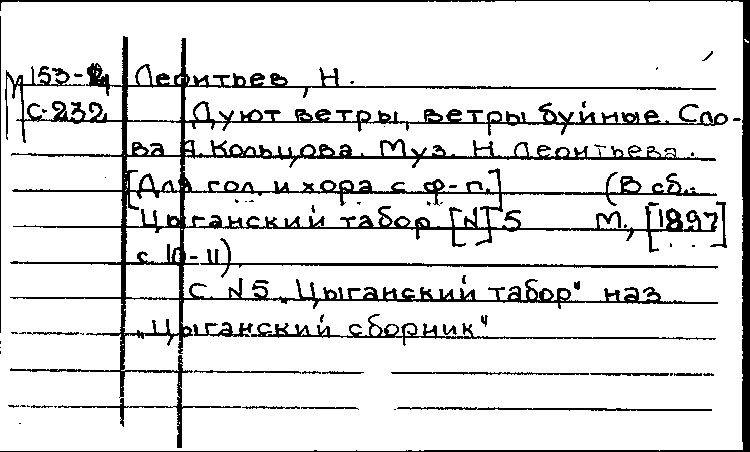 М 153-2 Леонтьев, Н.
С-232 Дуют ветры, ветры буйные. Сло-
ва А. Кольцова. Муз. Н. Леонтьева.
[Для гол. и хора с ф-п.] (В сб.:
Цыганский табор. [N] 5 М., [1897]
с. 10-11)
С N5 „Цыганский табор" наз
„Цыганский сборник"